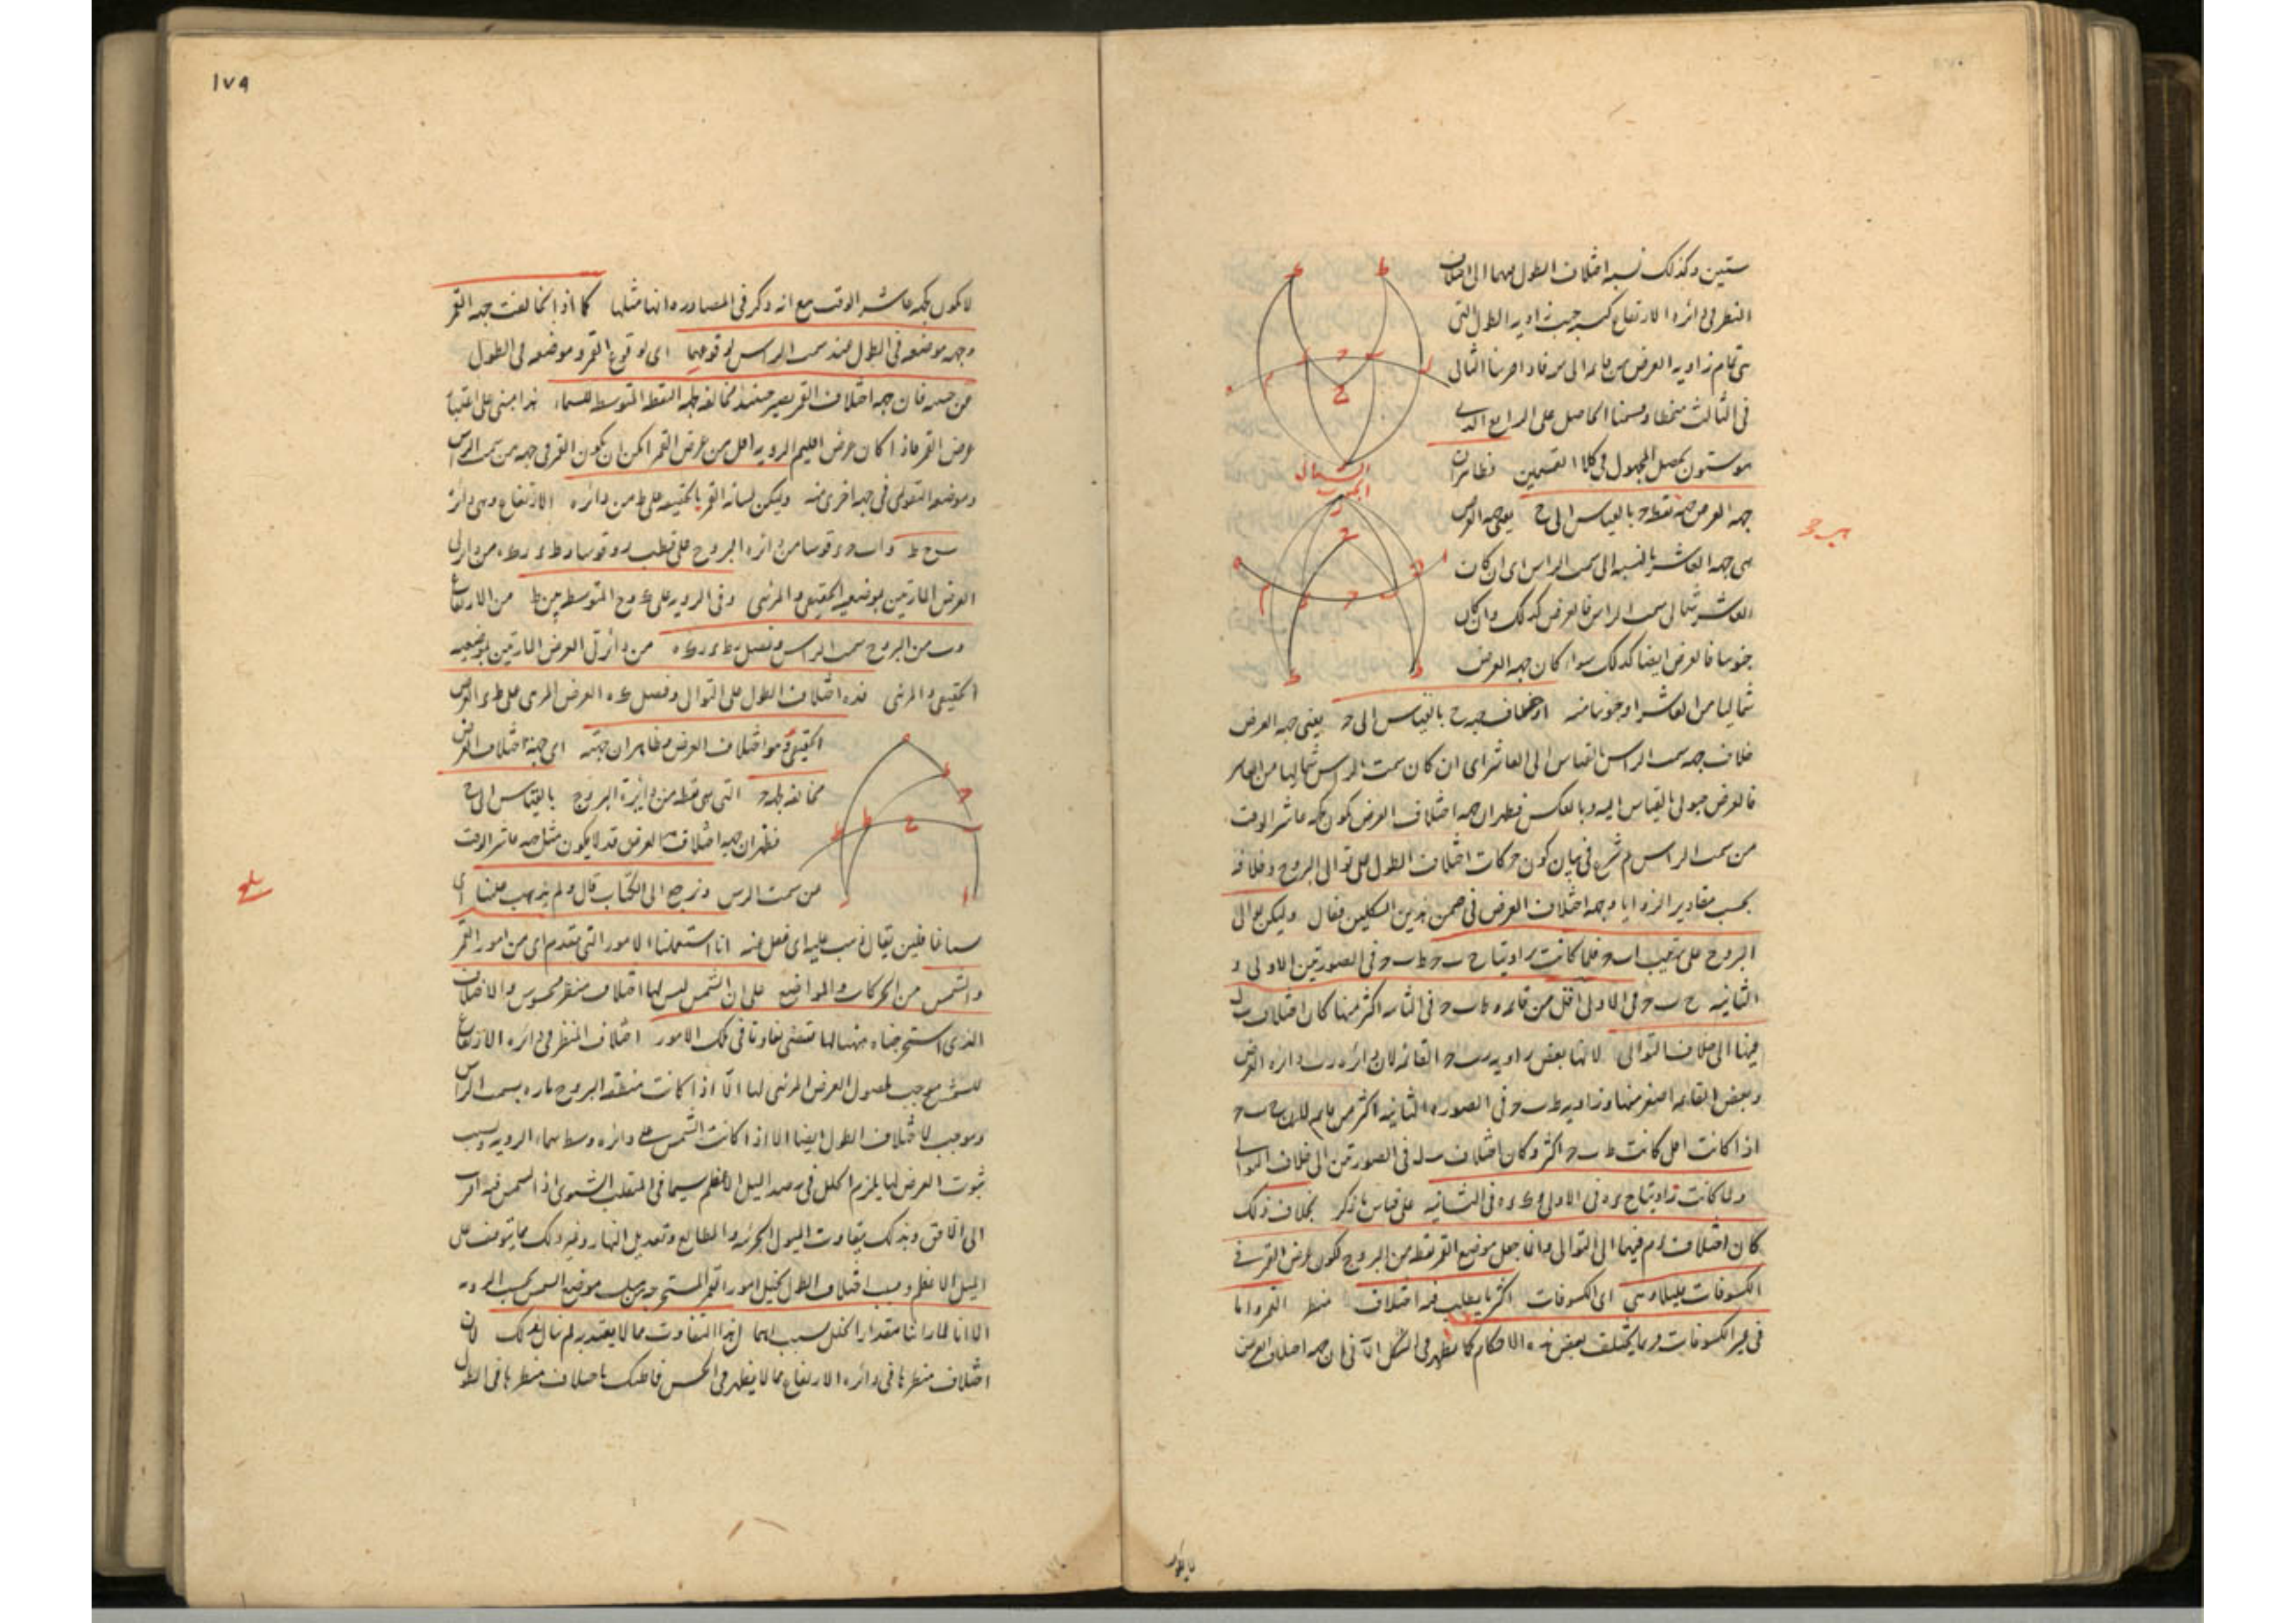 ستين وكذلك نسبة اختلاف الطول منهما الى اختلاف
النظر فى دائرة الارتفاع كنسبة جيب زاوية الطول التى
هى تمام زاوية العرض من قائمة الى ستين فاذا ضربنا الثانى
فى الثالث منحطا وقسمنا الحاصل على الرابع الذى
هو ستون يحصل المجهول فى كلا القسمين فظاهر ان
جهة العرض جهة نقطة ح بالقياس الى ح يعنى جهة العرض
هى جهة العاشر بالنسبة الى سمت الراس اى ان كان
العاشر شمالى سمت الراس فالعرض كذلك وان كان
جنوبيا فالعرض ايضا كذلك سواء كان جهة العرض
شماليا من العاشر او جنوبيا منه او خلاف جهة ح بالقياس الى ح يعنى جهة العرض
خلاف جهة سمت الراس بالقياس الى العاشر اى ان كان سمت الراس شماليا من العاشر
فالعرض جنوبى بالقياس اليه وبالعكس فظهر ان جهة اختلاف العرض يكون جهة عاشر الوقت
من سمت الراس ثم شرع فى بيان كون حركات اختلاف الطول على توالى البروج وخلافه
بحسب مقادير الزوايا وجهة اختلاف العرض فى ضمن هذين الشكلين فقال وليكن توالى
البروج على ترتيب ا ب ح فلما كانت زاويتا ح ب ح ط ب ح فى الصورتين الاولى و
الثانية ح ب ح فى الاولى اقل من قائمة و ط ب ح فى الثانية اكثر منها كان اختلاف ب ل
فيهما الى خلاف التوالى لانها بعض زاوية ر ب ح القائمة لان دائرة ر ب دائرة العرض
وبعض القائمة اصغر منها وزاوية ط ب ح فى الصورة الثانية اكثر من قائمة لان ح ب ح
اذا كانت اقل كانت ط ب ح اكثر وكان اختلاف ب ل فى الصورتين الى خلاف التوالى
ولما كانت زاويتا ح ء ه فى الاولى و ك ء ه فى الثانية على قياس ما ذكر بخلاف ذلك
كان اختلاف ء م فيهما الى التوالى وانما جعل موضع القمر نقطة من البروج لكون عرض القمر فى
الكسوفات قليلا وهى اى الكسوفات اكثر ما يطلب فيه اختلاف منظر القمر واما
فى غير الكسوفات فربما يختلف بعض هذه الاحكام كما يظهر فى الشكل الآتى فان جهة اختلاف العرض
الشمالى
الجنوب
لا يكون
١٧٩
لا يكون جهة عاشر الوقت مع انه ذكر فى المصادرة انها مثلها كما اذا تخالفت جهة القمر
وجهة موضعه فى الطول عند سمت الراس لوقوعهما اى لوقوع القمر وموضعه فى الطول
عن جنبيه فان جهة اختلاف القمر يصير حينئذ مخالفة لجهة النقطة المتوسطة للسماء هذا مبنى على اعتبار
عرض القمر فاذا كان عرض اقليم الرؤية اقل من عرض القمر امكن ان يكون القمر فى جهة من سمت الراس
وموضعه التقويمى فى جهة اخرى منه وليكن لبيانه القمر بالحقيقة على ط من دائرة الارتفاع وهى دائرة
ب ح ط و ا ب ح ء قوسا من دائرة البروج على قطب ر وقوسا ر ط ء ر ك ه من دائرتى
العرض المارتين بموضعيه الحقيقى والمرئى وفى الرؤية على ك و ح المتوسطة بين ط من الارتفاع
و ب من البروج سمت الراس ونصل ر ط ء ر ك ه من دائرتى العرض المارتين بموضعيه
الحقيقى والمرئى فـ ء ه اختلاف الطول على التوالى وفضل ك ه العرض المرئى على ط ء العرض
الحقيقى هو اختلاف العرض وظاهر ان جهته اى جهة اختلاف العرض
مخالفة لجهة ح التى هى نقطة من دائرة البروج بالقياس الى ح
فظهر ان جهة اختلاف العرض قد لا يكون مثل جهة عاشر الوقت
من سمت الراس ونرجع الى الكتاب قال ولم يذهب علينا اى
لسنا غافلين يقال ذهب عليه اى غفل عنه انا استعملنا الامور التى تقدم اى من امور القمر
والشمس من الحركات والمواضع على ان الشمس ليس لها اختلاف منظر محسوس والاختلاف
الذى استخرجناه ههنا لها مقتضى تفاوتا فى تلك الامور اختلاف المنظر فى دائرة الارتفاع
للشمس موجب لحصول العرض المرئى لها الا اذا كانت منطقة البروج مارة بسمت الراس
وموجب لاختلاف الطول ايضا الا اذا كانت الشمس على دائرة وسط سماء الرؤية وبسبب
ثبوت العرض لها يلزم الخلل فى رصد الميل الاعظم سيما فى المنقلب الشتوى اذ الشمس فيه اقرب
الى الافق وبذلك يتفاوت الميول الجزئية والمطالع وتعديل النهار وغير ذلك مما يتوقف على
الميل الاعظم وبسبب اختلاف الطول يختل امور القمر المستخرجة من قبل موضع الشمس بحسب الرؤية
الا انا لما راينا مقدار الخلل بسببهما لهذا التفاوت مما لا يعتد به لم نبال بذلك لان
اختلاف منظرها فى دائرة الارتفاع مما لا يظهر فى الحس فما ظنك باختلاف منظرها فى الطول